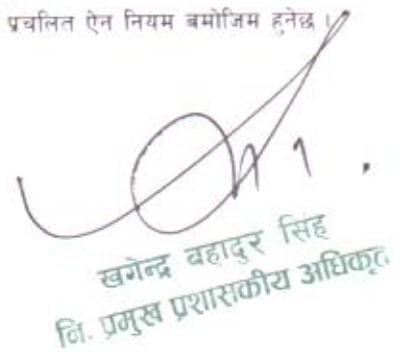 प्रचलित ऐन नियम बमोजिम हुनेछ ।
खगेन्द्र बहादुर सिंह
नि. प्रमुख प्रशासकीय अधिकृत